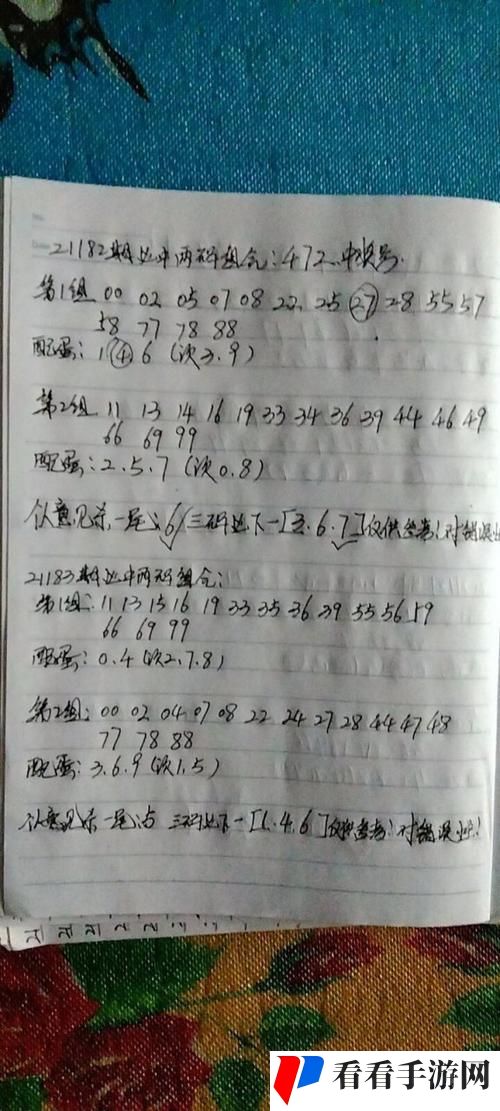 21182期必中两码组合:472.中奖号.
第1组 00 02 05 07 08 22. 25 27 28 55 57
58 77 78 88
配蛋: 1 4 6 (次3.9)
第2组 11 13 14 16 19 33 34 36 39 44 46 49
66 69 99
配蛋: 2.5.7 (次0.8)
个人意见杀一尾:6/三码必下一[3.6.7]仅供参考!对错误
21183期必中两码组合:
第1组:11 13 15 16 19 33 35 36 39 55 56 59
66 69 99
配蛋: 0.4(次2.7.8)
第2组: 00 02 04 07 08 22 24 27 28 44 47 48
77 78 88
配蛋: 3.6.9(次1.5)
个人意见杀一尾: 三码必下一[1.4.6]仅供参考!对错误
看看手游网